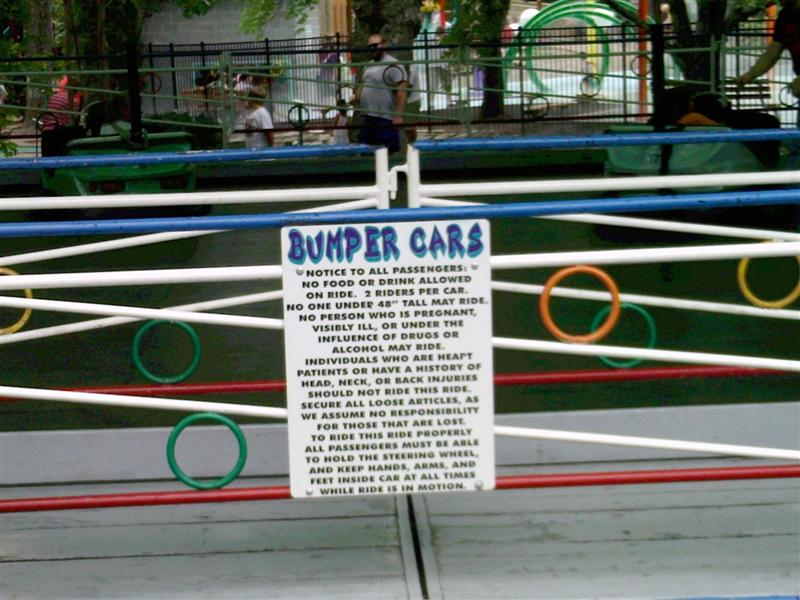 BUMPER CARS
NOTICE TO ALL PASSENGERS:
NO FOOD OR DRINK ALLOWED
ON RIDE. 2 RIDERS PER CAR.
NO ONE UNDER 48" TALL MAY RIDE.
NO PERSON WHO IS PREGNANT,
VISIBLY ILL, OR UNDER THE
INFLUENCE OF DRUGS OR
ALCOHOL MAY RIDE.
INDIVIDUALS WHO ARE HEART
PATIENTS OR HAVE A HISTORY OF
HEAD, NECK, OR BACK INJURIES
SHOULD NOT RIDE THIS RIDE.
SECURE ALL LOOSE ARTICLES, AS
WE ASSUME NO RESPONSIBILITY
FOR THOSE THAT ARE LOST.
TO RIDE THIS RIDE PROPERLY
ALL PASSENGERS MUST BE ABLE
TO HOLD THE STEERING WHEEL,
AND KEEP HANDS, ARMS, AND
FEET INSIDE CAR AT ALL TIMES
WHILE RIDE IS IN MOTION.